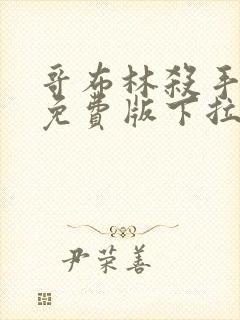 哥布林殺手
免費版下拉
尹荣善